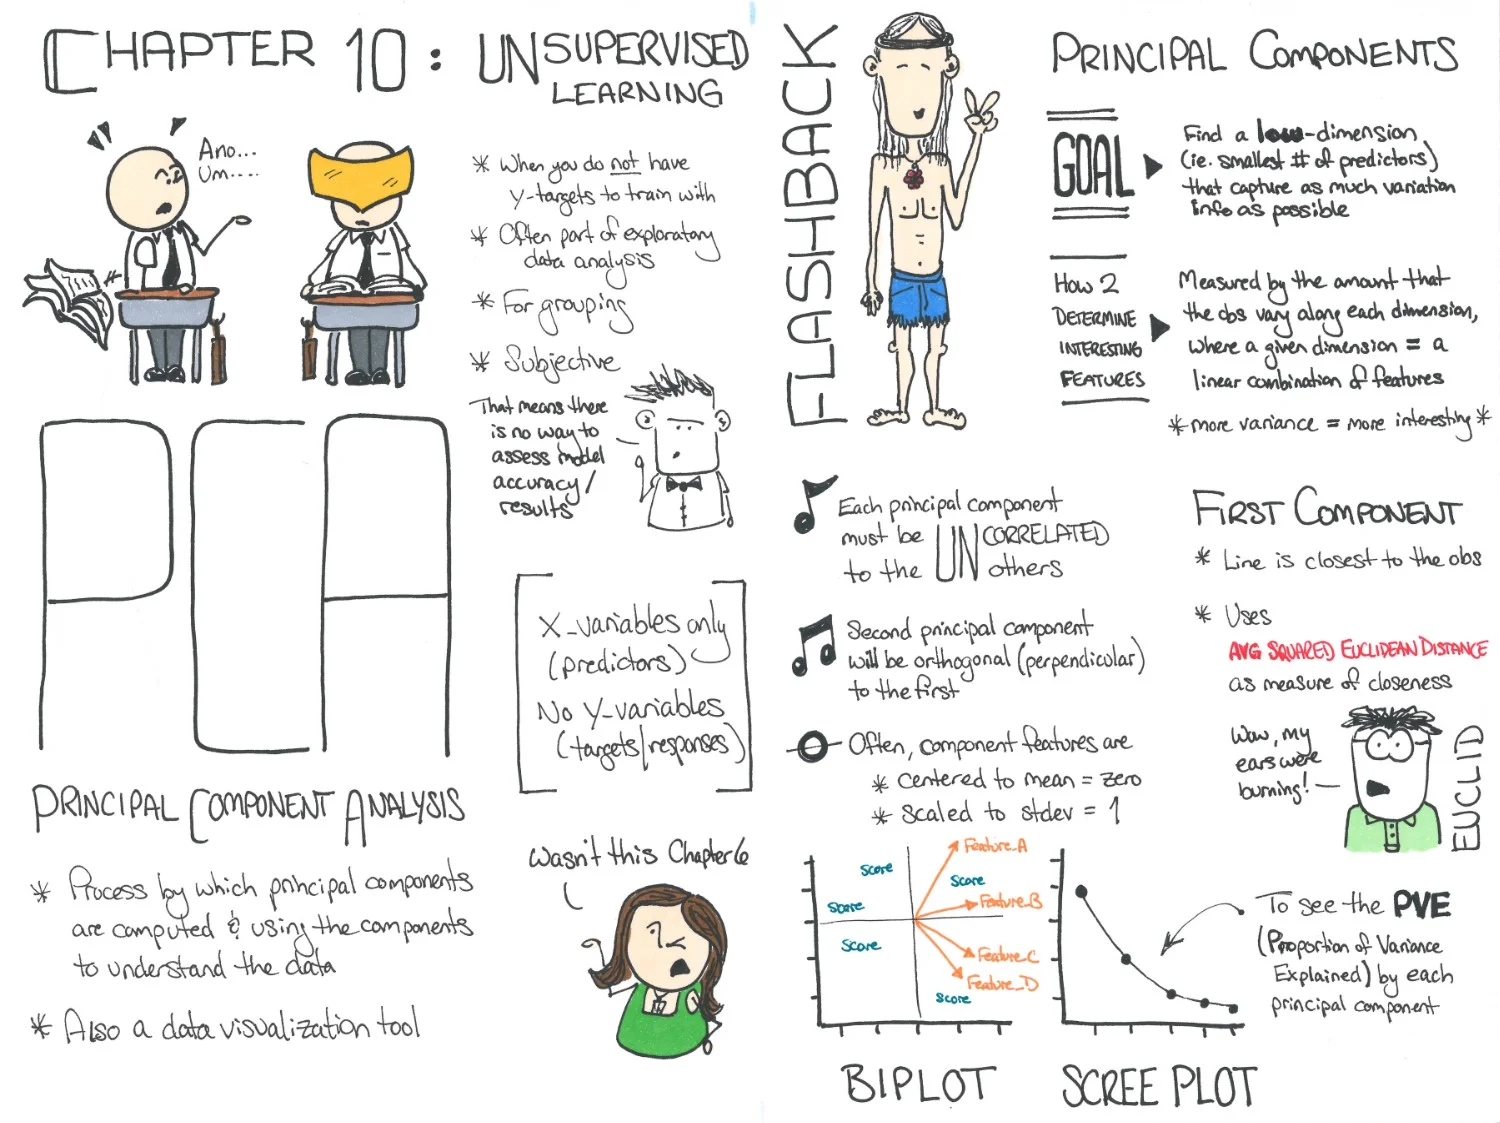 CHAPTER 10:
UNSUPERVISED
LEARNING
Ano...
Um....
* When you do not have
Y-targets to train with
* Often part of exploratory
data analysis
* For grouping
* Subjective
That means there
is no way to
assess model
accuracy/
results
PCA
PRINCIPAL COMPONENT ANALYSIS
* Process by which principal components
are computed & using the components
to understand the data
* Also a data visualization tool
X-variables only
(predictors)
No Y-variables
(targets/responses)
Wasn't this Chapter 6
FLASHBACK
PRINCIPAL COMPONENTS
GOAL
Find a low-dimension
(ie. smallest # of predictors)
that capture as much variation
info as possible
HOW 2
DETERMINE
INTERESTING
FEATURES
Measured by the amount that
the obs vary along each dimension,
where a given dimension = a
linear combination of features
* more variance = more interesting *
Each principal component
must be UNCORRELATED
to the others
Second principal component
will be orthogonal (perpendicular)
to the first
Often, component features are
* centered to mean = zero
* scaled to stdev = 1
FIRST COMPONENT
* Line is closest to the obs
* Uses
AVG SQUARED EUCLIDEAN DISTANCE
as measure of closeness
Wow, my
ears were
burning!
EUCLID
Score
Feature_A
Score
Score
Feature_B
Score
Feature_C
Feature_D
Score
BIPLOT
To see the PVE
(Proportion of Variance
Explained) by each
principal component
SCREE PLOT